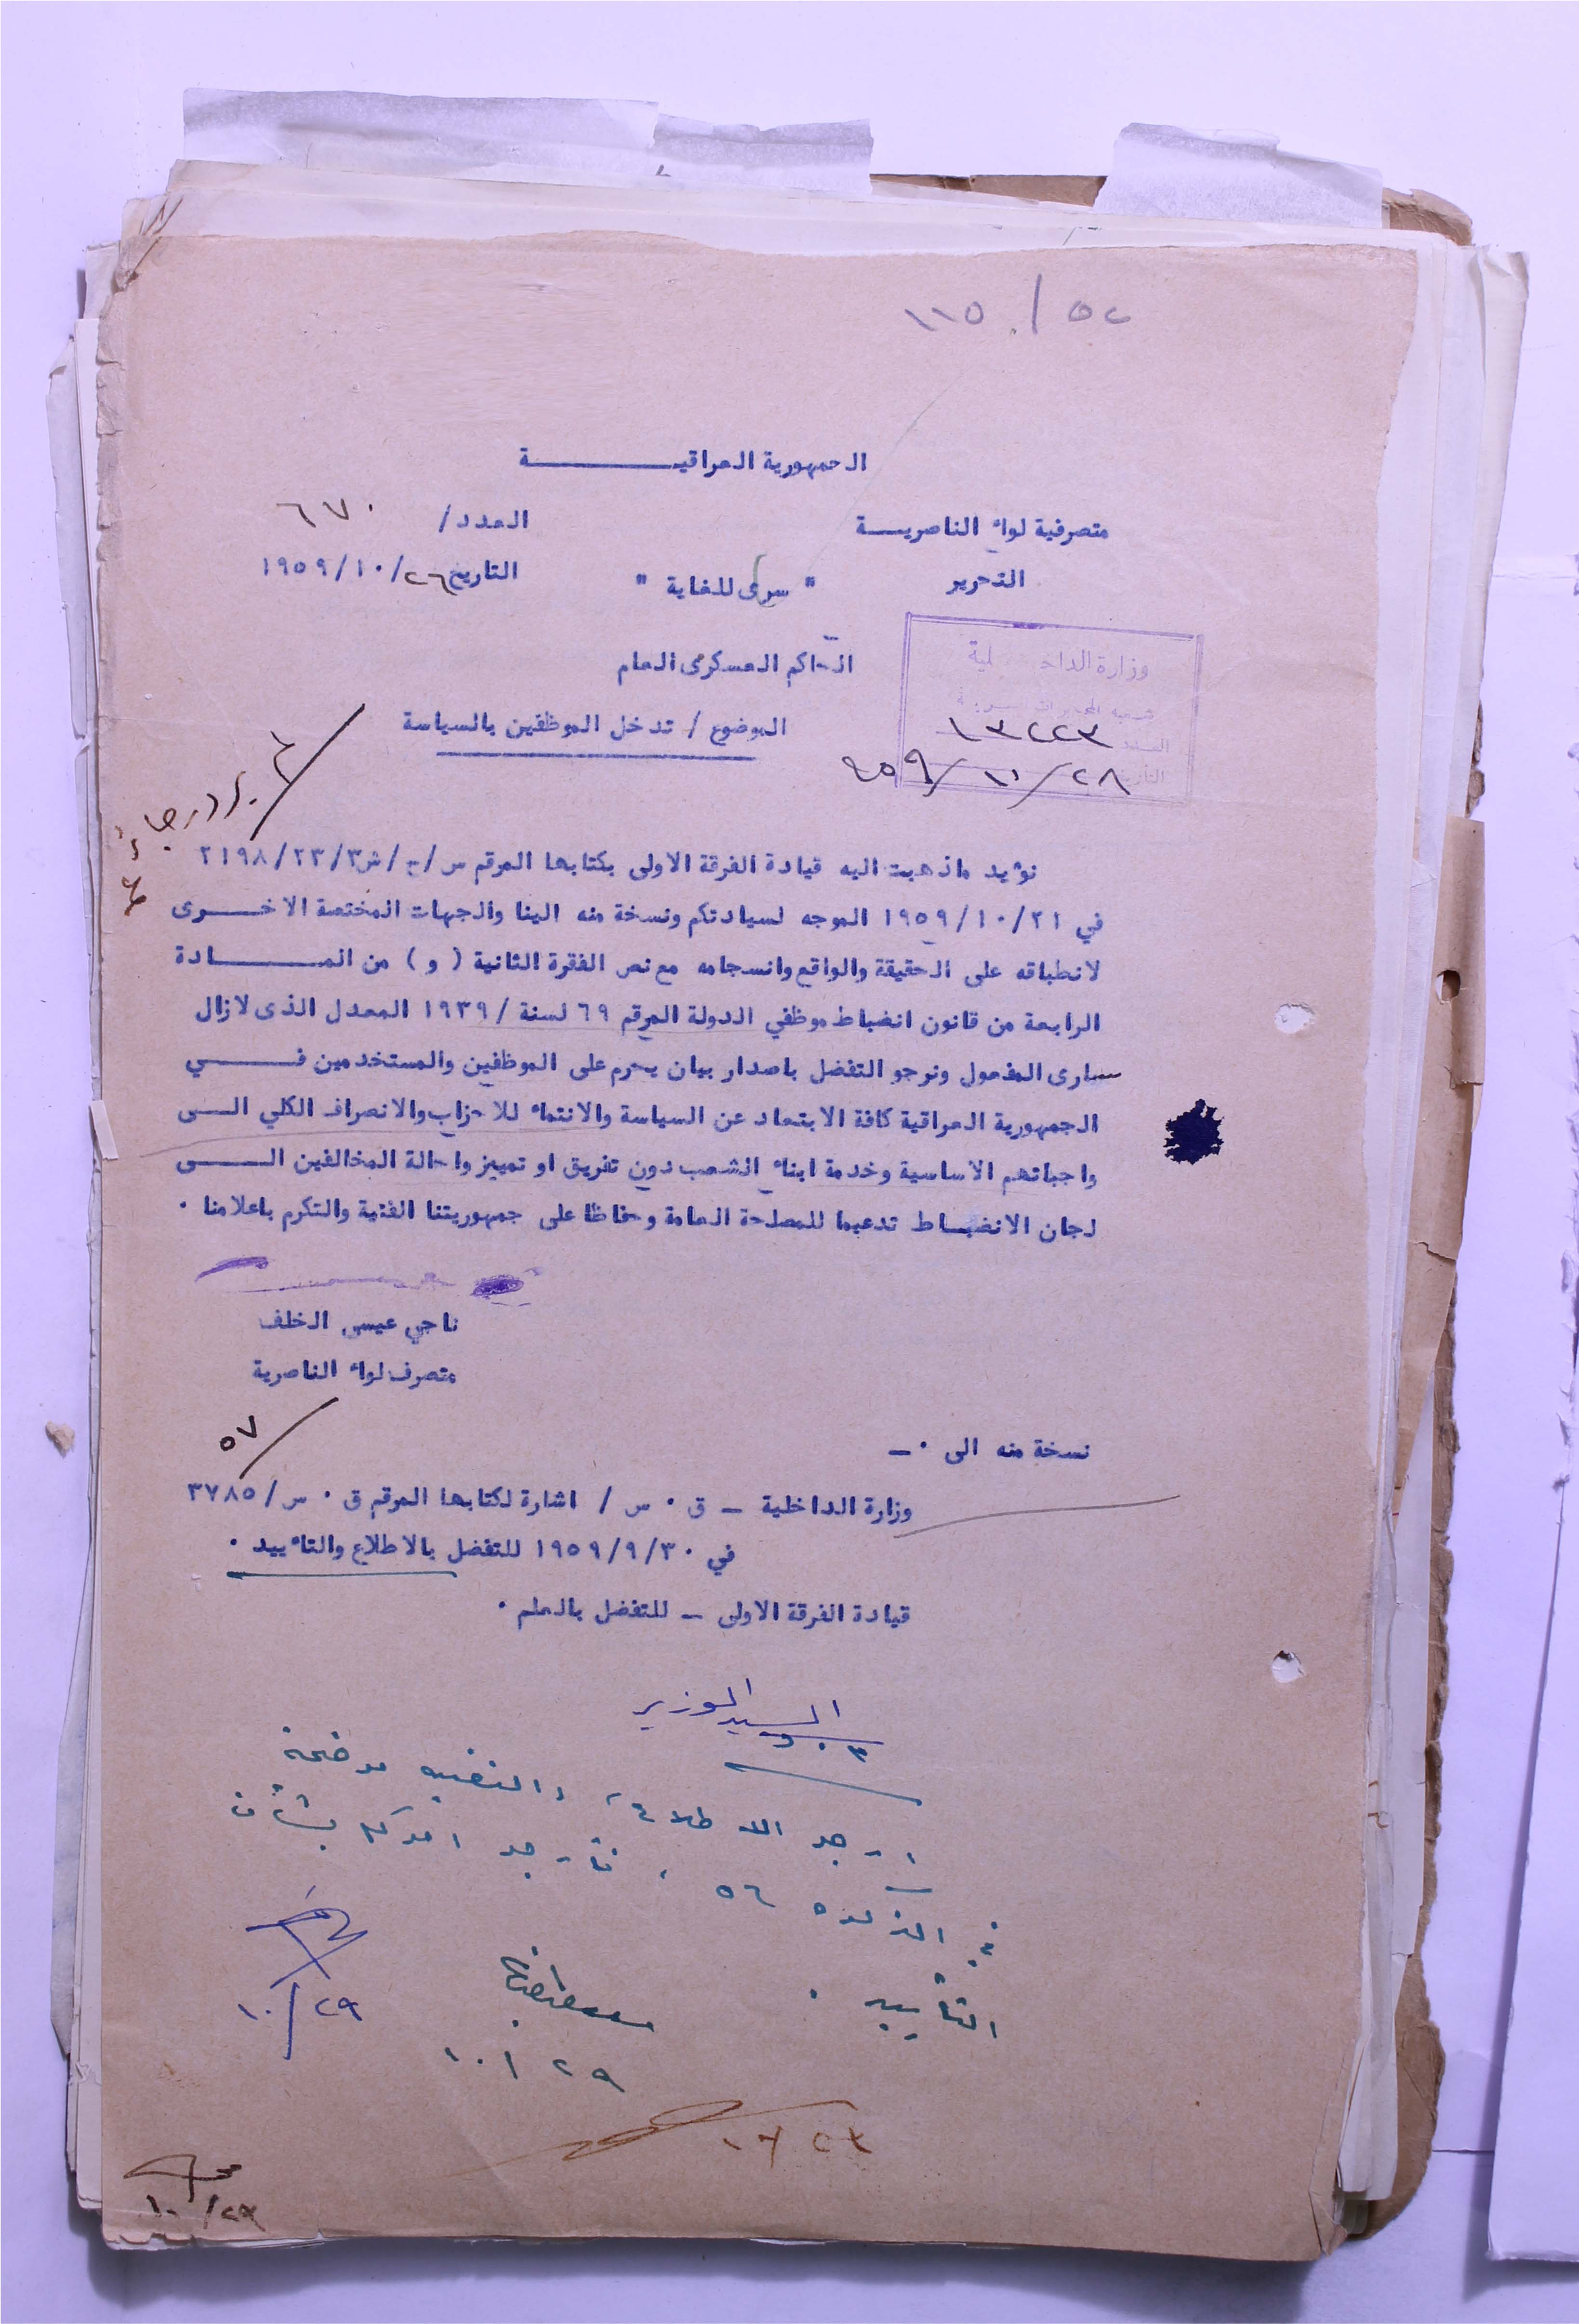 ٥٢ / ١١٥
الجمهورية العراقيـــــــــة
متصرفية لواء الناصريـــة
العدد / ٦٧٠
التحرير
" سرى للغاية "
التاريخ ٢٦/١٠/١٩٥٩
وزارة الداخلية
العدد ١٣٢٢٣
التاريخ ٢٨/١٠/٩٥٩
الحاكم العسكرى العام
الموضوع / تدخل الموظفين بالسياسة
نؤيد ماذهبت اليه قيادة الفرقة الاولى بكتابها المرقم س/ح/ش٣/٢٣/٢١٩٨
في ٢١/١٠/١٩٥٩ الموجه لسيادتكم ونسخة منه الينا والجهات المختصة الاخـــرى
لانطباقه على الحقيقة والواقع وانسجامه مع نص الفقرة الثانية ( و ) من المـــــــادة
الرابعة من قانون انضباط موظفي الدولة المرقم ٦٩ لسنة / ١٩٣٩ المعدل الذى لازال
سارى المفعول ونرجو التفضل باصدار بيان يحرم على الموظفين والمستخدمين فــــــي
الجمهورية العراقية كافة الابتعاد عن السياسة والانتماء للاحزاب والانصراف الكلي الــى
واجباتهم الاساسية وخدمة ابناء الشعب دون تفريق او تمييز واحالة المخالفين الـــــى
لجان الانضبـاط تدعيما للمصلحة العامة وحفاظا على جمهوريتنا الفتية والتكرم باعلامنا ٠
ناجي عيسى الخلف
متصرف لواء الناصرية
٥٧
نسخة منه الى ٠ــ
وزارة الداخلية ــ ق ٠ س / اشارة لكتابها المرقم ق ٠ س/٣٧٨٥
في ٣٠/٩/١٩٥٩ للتفضل بالاطلاع والتأييد ٠
قيادة الفرقة الاولى ــ للتفضل بالعلم ٠
السيد الوزير
ارجو الاطلاع
في ٥٦ امركم
التأييد ٠
٢٩/١٠
٢٩/١٠
٢٩/١٠